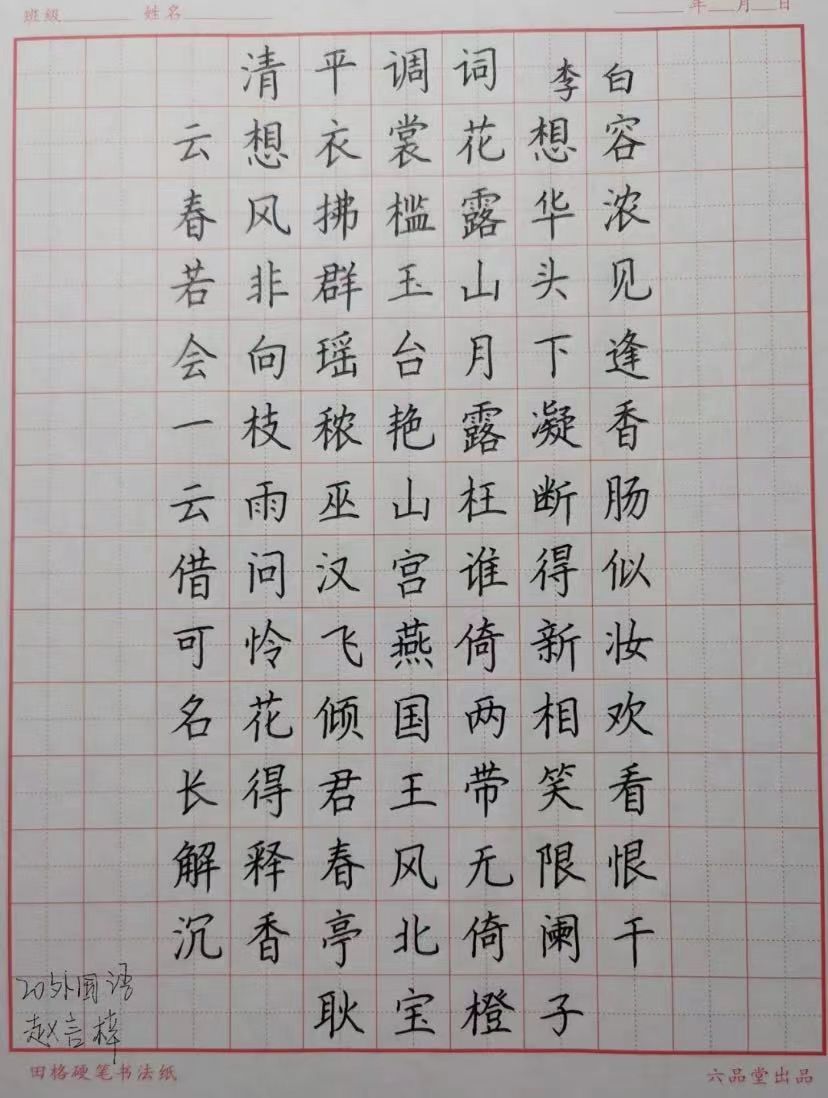 班级 姓名 年 月 日
清平调词 李白
云想衣裳花想容
春风拂槛露华浓
若非群玉山头见
会向瑶台月下逢
一枝秾艳露凝香
云雨巫山枉断肠
借问汉宫谁得似
可怜飞燕倚新妆
名花倾国两相欢
长得君王带笑看
解释春风无限恨
沉香亭北倚阑干
耿宝橙子
20外国语
赵言梓
田格硬笔书法纸 六品堂出品